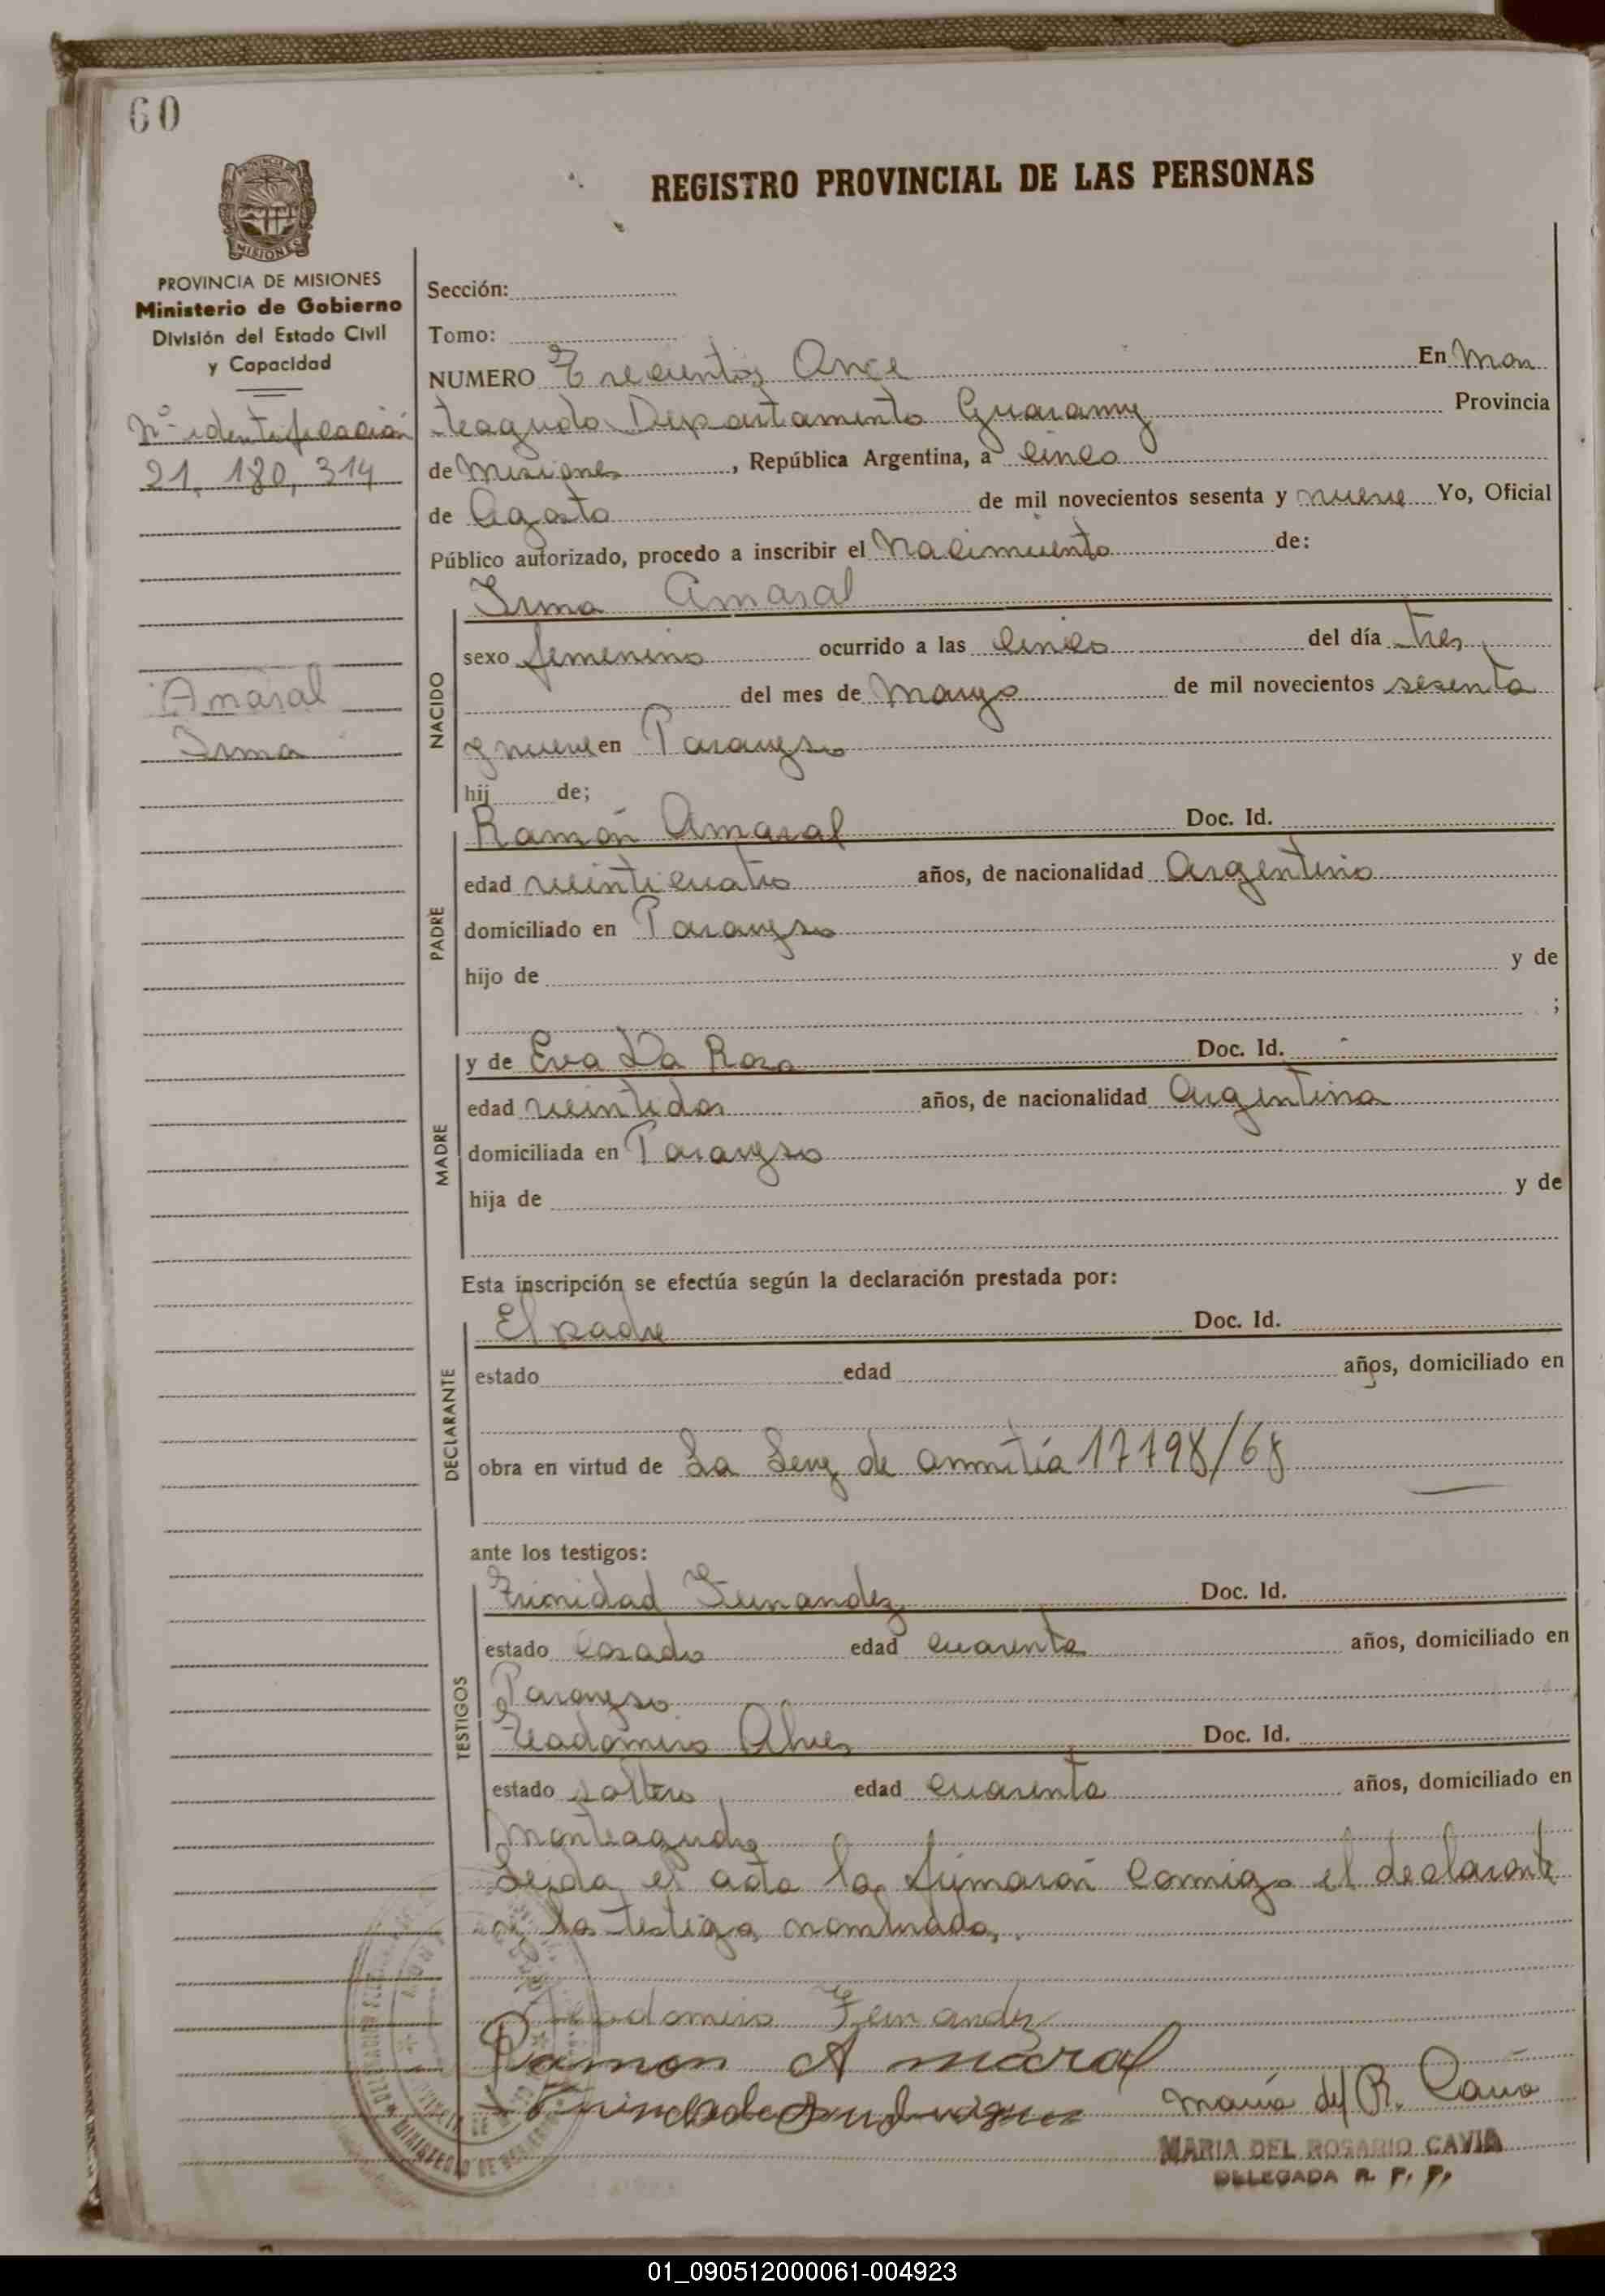 60
PROVINCIA DE
MISIONES
PROVINCIA DE MISIONES
Ministerio de Gobierno
División del Estado Civil
y Capacidad
Nº identificación
21.180,314
Amaral
Irma
REGISTRO PROVINCIAL DE LAS PERSONAS
Sección:
Tomo:
NUMERO Trecientos Once En Mon
teagudo Departamento Guarany Provincia
de Misiones, República Argentina, a cinco
de Agosto de mil novecientos sesenta y nueve Yo, Oficial
Público autorizado, procedo a inscribir el Nacimiento de:
Irma Amaral
NACIDO
sexo femenino ocurrido a las cinco del día tres
del mes de Mayo de mil novecientos sesenta
y nueve en Parayso
hij de;
PADRE
Ramón Amaral Doc. Id.
edad veinticuatro años, de nacionalidad Argentino
domiciliado en Parayso
hijo de y de
;
MADRE
y de Eva Da Rosa Doc. Id.
edad veintidos años, de nacionalidad Argentina
domiciliada en Parayso
hija de y de
Esta inscripción se efectúa según la declaración prestada por:
DECLARANTE
El padre Doc. Id.
estado edad años, domiciliado en
obra en virtud de La Ley de amnitía 17798/68
ante los testigos:
TESTIGOS
Trinidad Fernandez Doc. Id.
estado casado edad cuarenta años, domiciliado en
Parayso
Teadomiro Alves Doc. Id.
estado soltero edad cuarenta años, domiciliado en
Monteagudo
Leida el acta la firmaran conmigo el declarante
y los testigos nombrados.
Teadomiro Fernandez
Ramon Amaral
María del R. Cavia
MARIA DEL ROSARIO CAVIA
DELEGADA R. P. P.
MINISTERIO DE
01_090512000061-004923